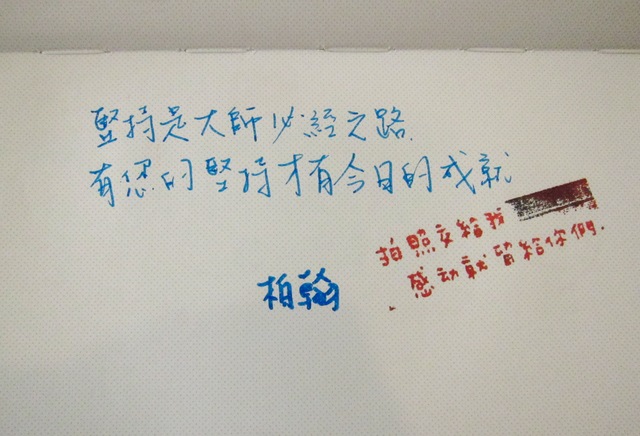 堅持是大師必經之路.
有您的堅持才有今日的成就
拍照交給我
感动就留給你們.
柏翰